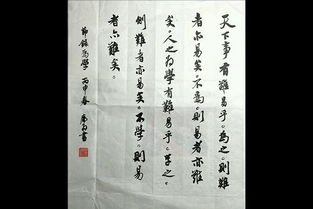 天下事有難易乎為之則難
者亦易矣不為則易者亦難
矣人之為學有難易乎學之
則難者亦易矣不學則易
者亦難矣
節錄為學 丙申春 書